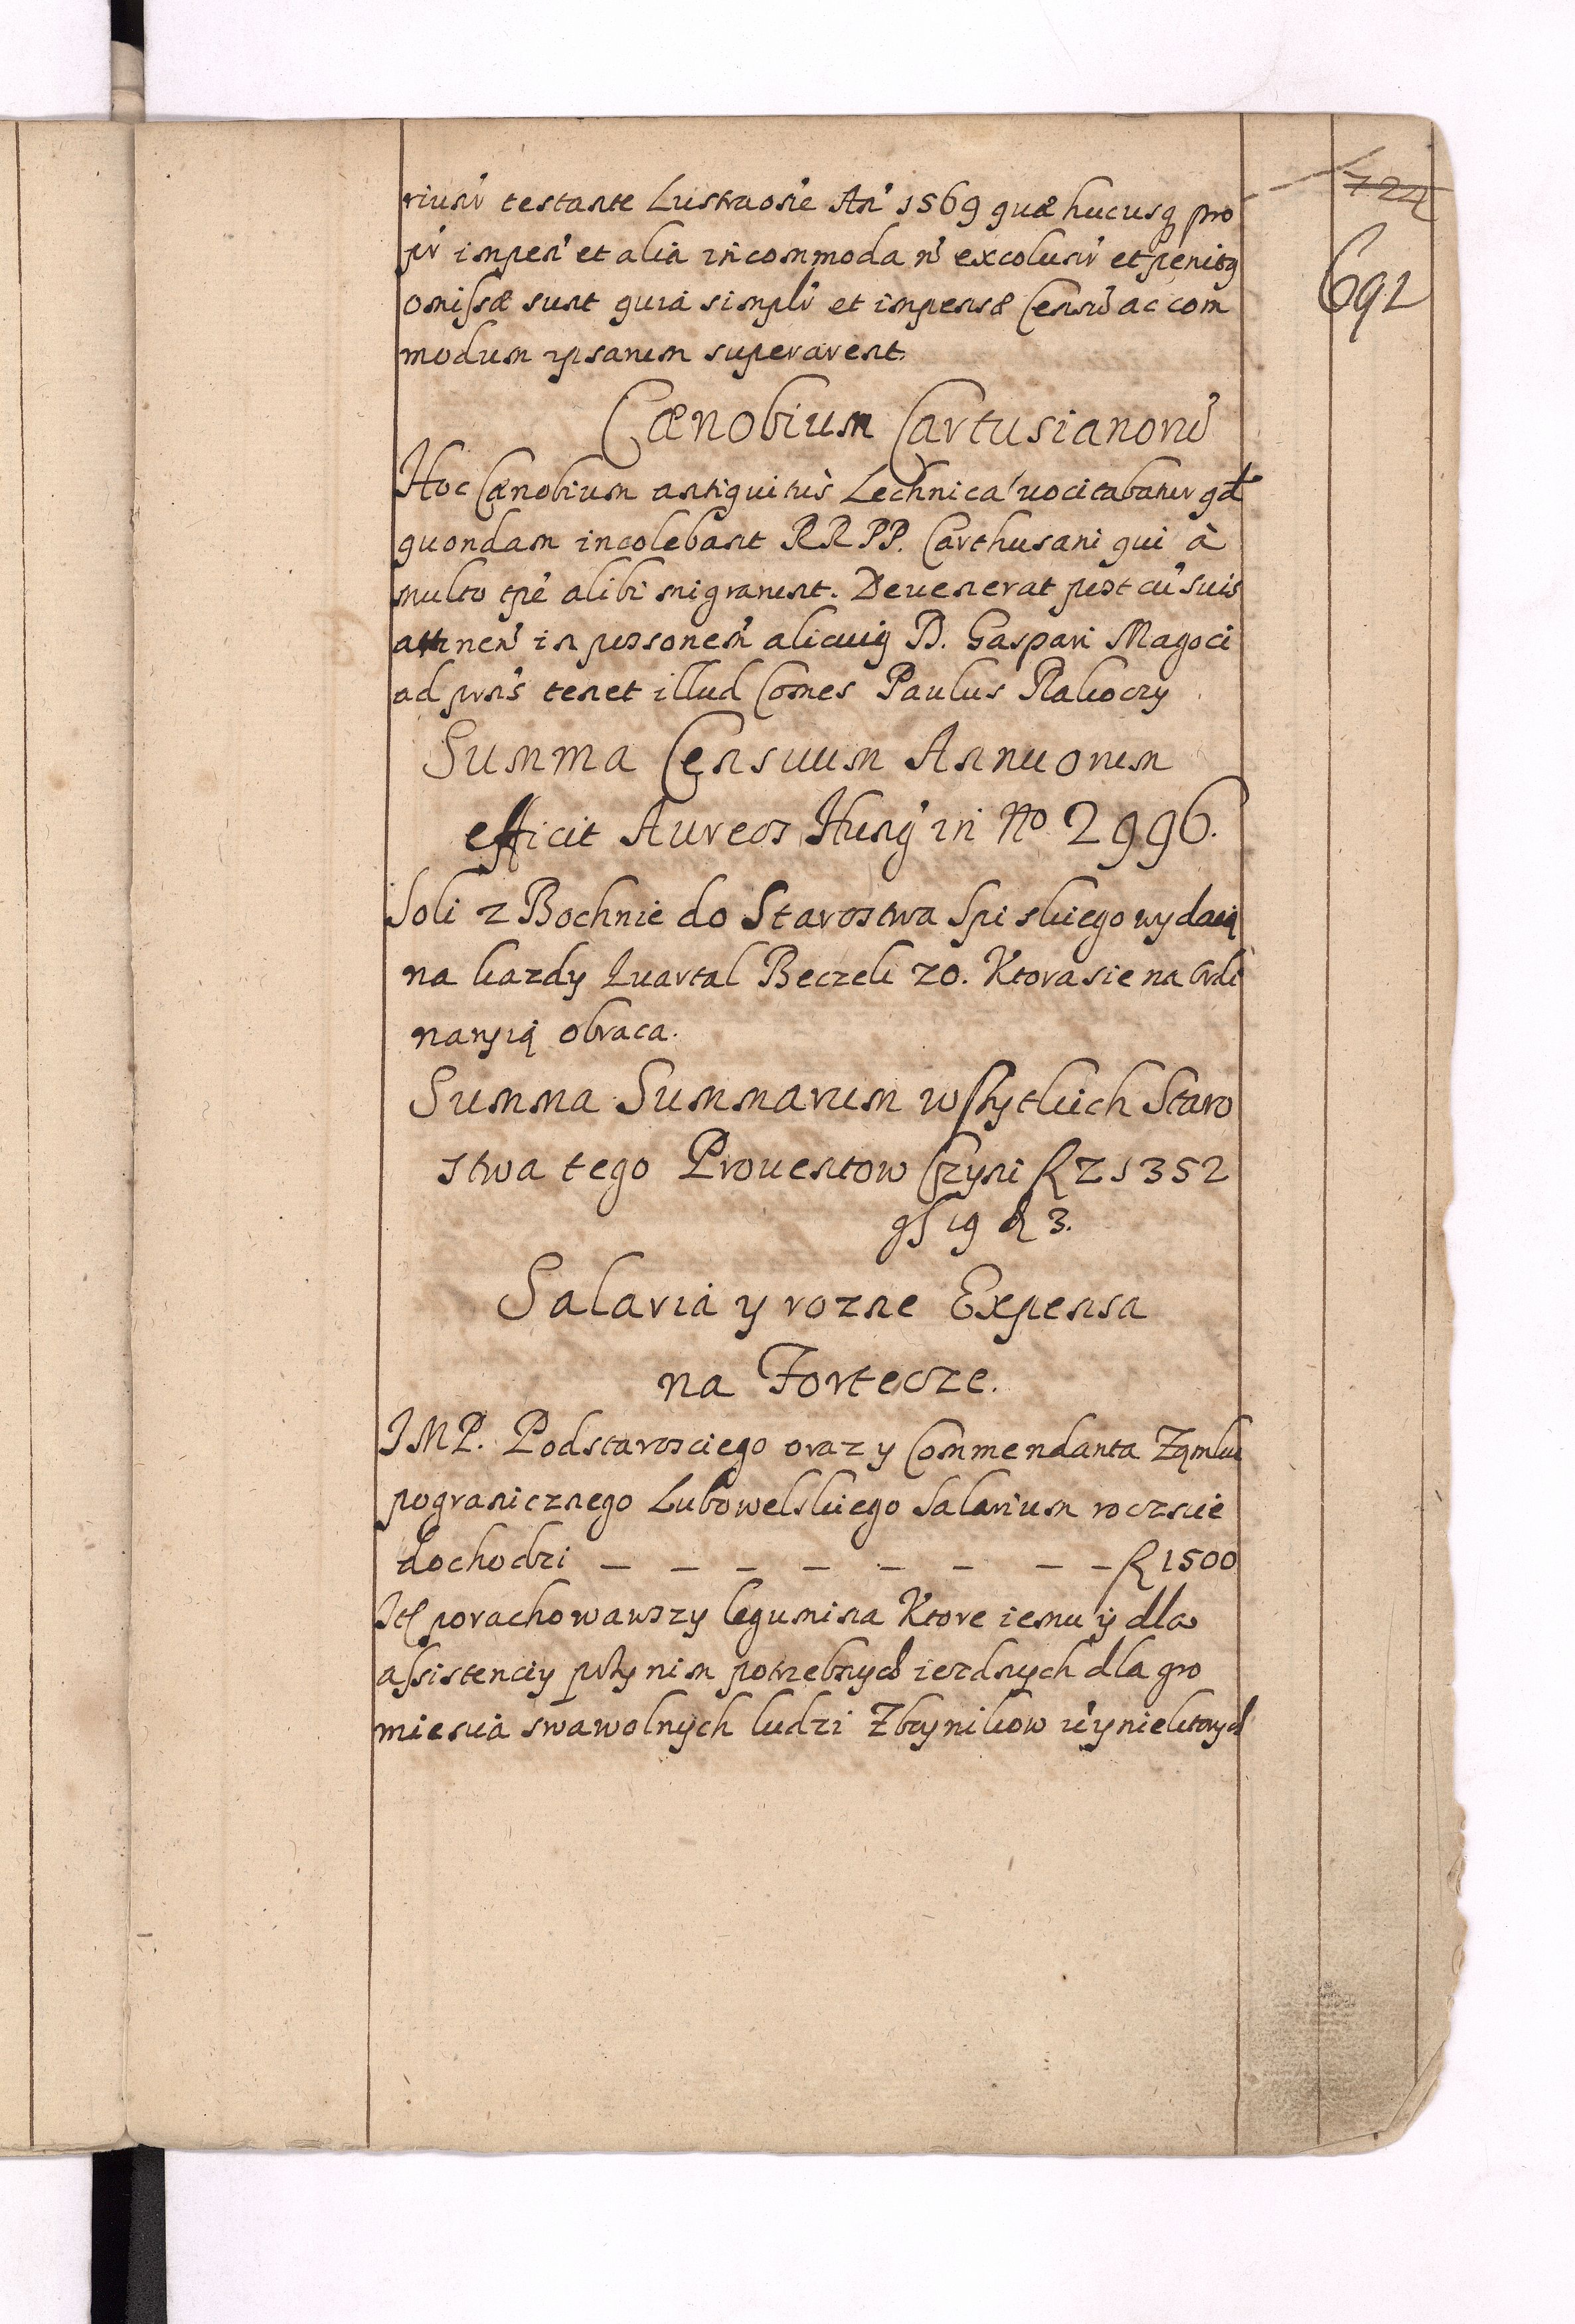 riun̄ testante Lustraon̄e An̄ 1569 quæ hucusq pro
impen̄ et alia incommoda n̄ excolun̄ et penitq
omissæ sunt quia et impensæ Censū ac com
modum ipsarum superarent.
Cænobium Cartusianorū
Hoc Cænobium antiquitùs Lechnica vocitabatur qd
quondam incolebant RR PP. Carthusani qui à
multo tp̄e alibi migrarunt. Devenerat post cū suis
attinen̄ in possonem̄ alicuiq D. Gaspari Magoci
ad prn̄s tenet illud Comes Paulus Rakoczy
Summa Censuum Annuorum
efficit Aureos Hunḡ in No 2996.
Soli z Bochnie do Starostwa Spiskiego wydaią
na kazdy Quartal Beczek 20. Ktora sie na Ordi
naryią obraca.
Summa Summarum wszytkich Staro
stwa tego Proventow Czyni R 21352
gs 19 d 3.
Salaria y rozne Expensa
na Fortecze.
JMP. Podstarosciego oraz y Commendanta Zamku
pogranicznego Lubowelskiego Salarium rocznie
dochodzi — — — — — — — — R 1500
Jtē porachowawszy legumina Ktore iemu y dla
assistenciy przy nim potrzebnych iezdnych dla gro
mienia swawolnych ludzi Zbrynikow y niektorych
724
692